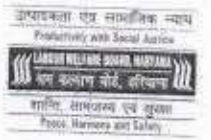 उत्पादकता एवं सामाजिक न्याय
Productivity with Social Justice
LABOUR WELFARE BOARD, HARYANA
श्रम कल्याण बोर्ड, हरियाणा
शान्ति, सामंजस्य एवं सुरक्षा
Peace Harmony and Safety